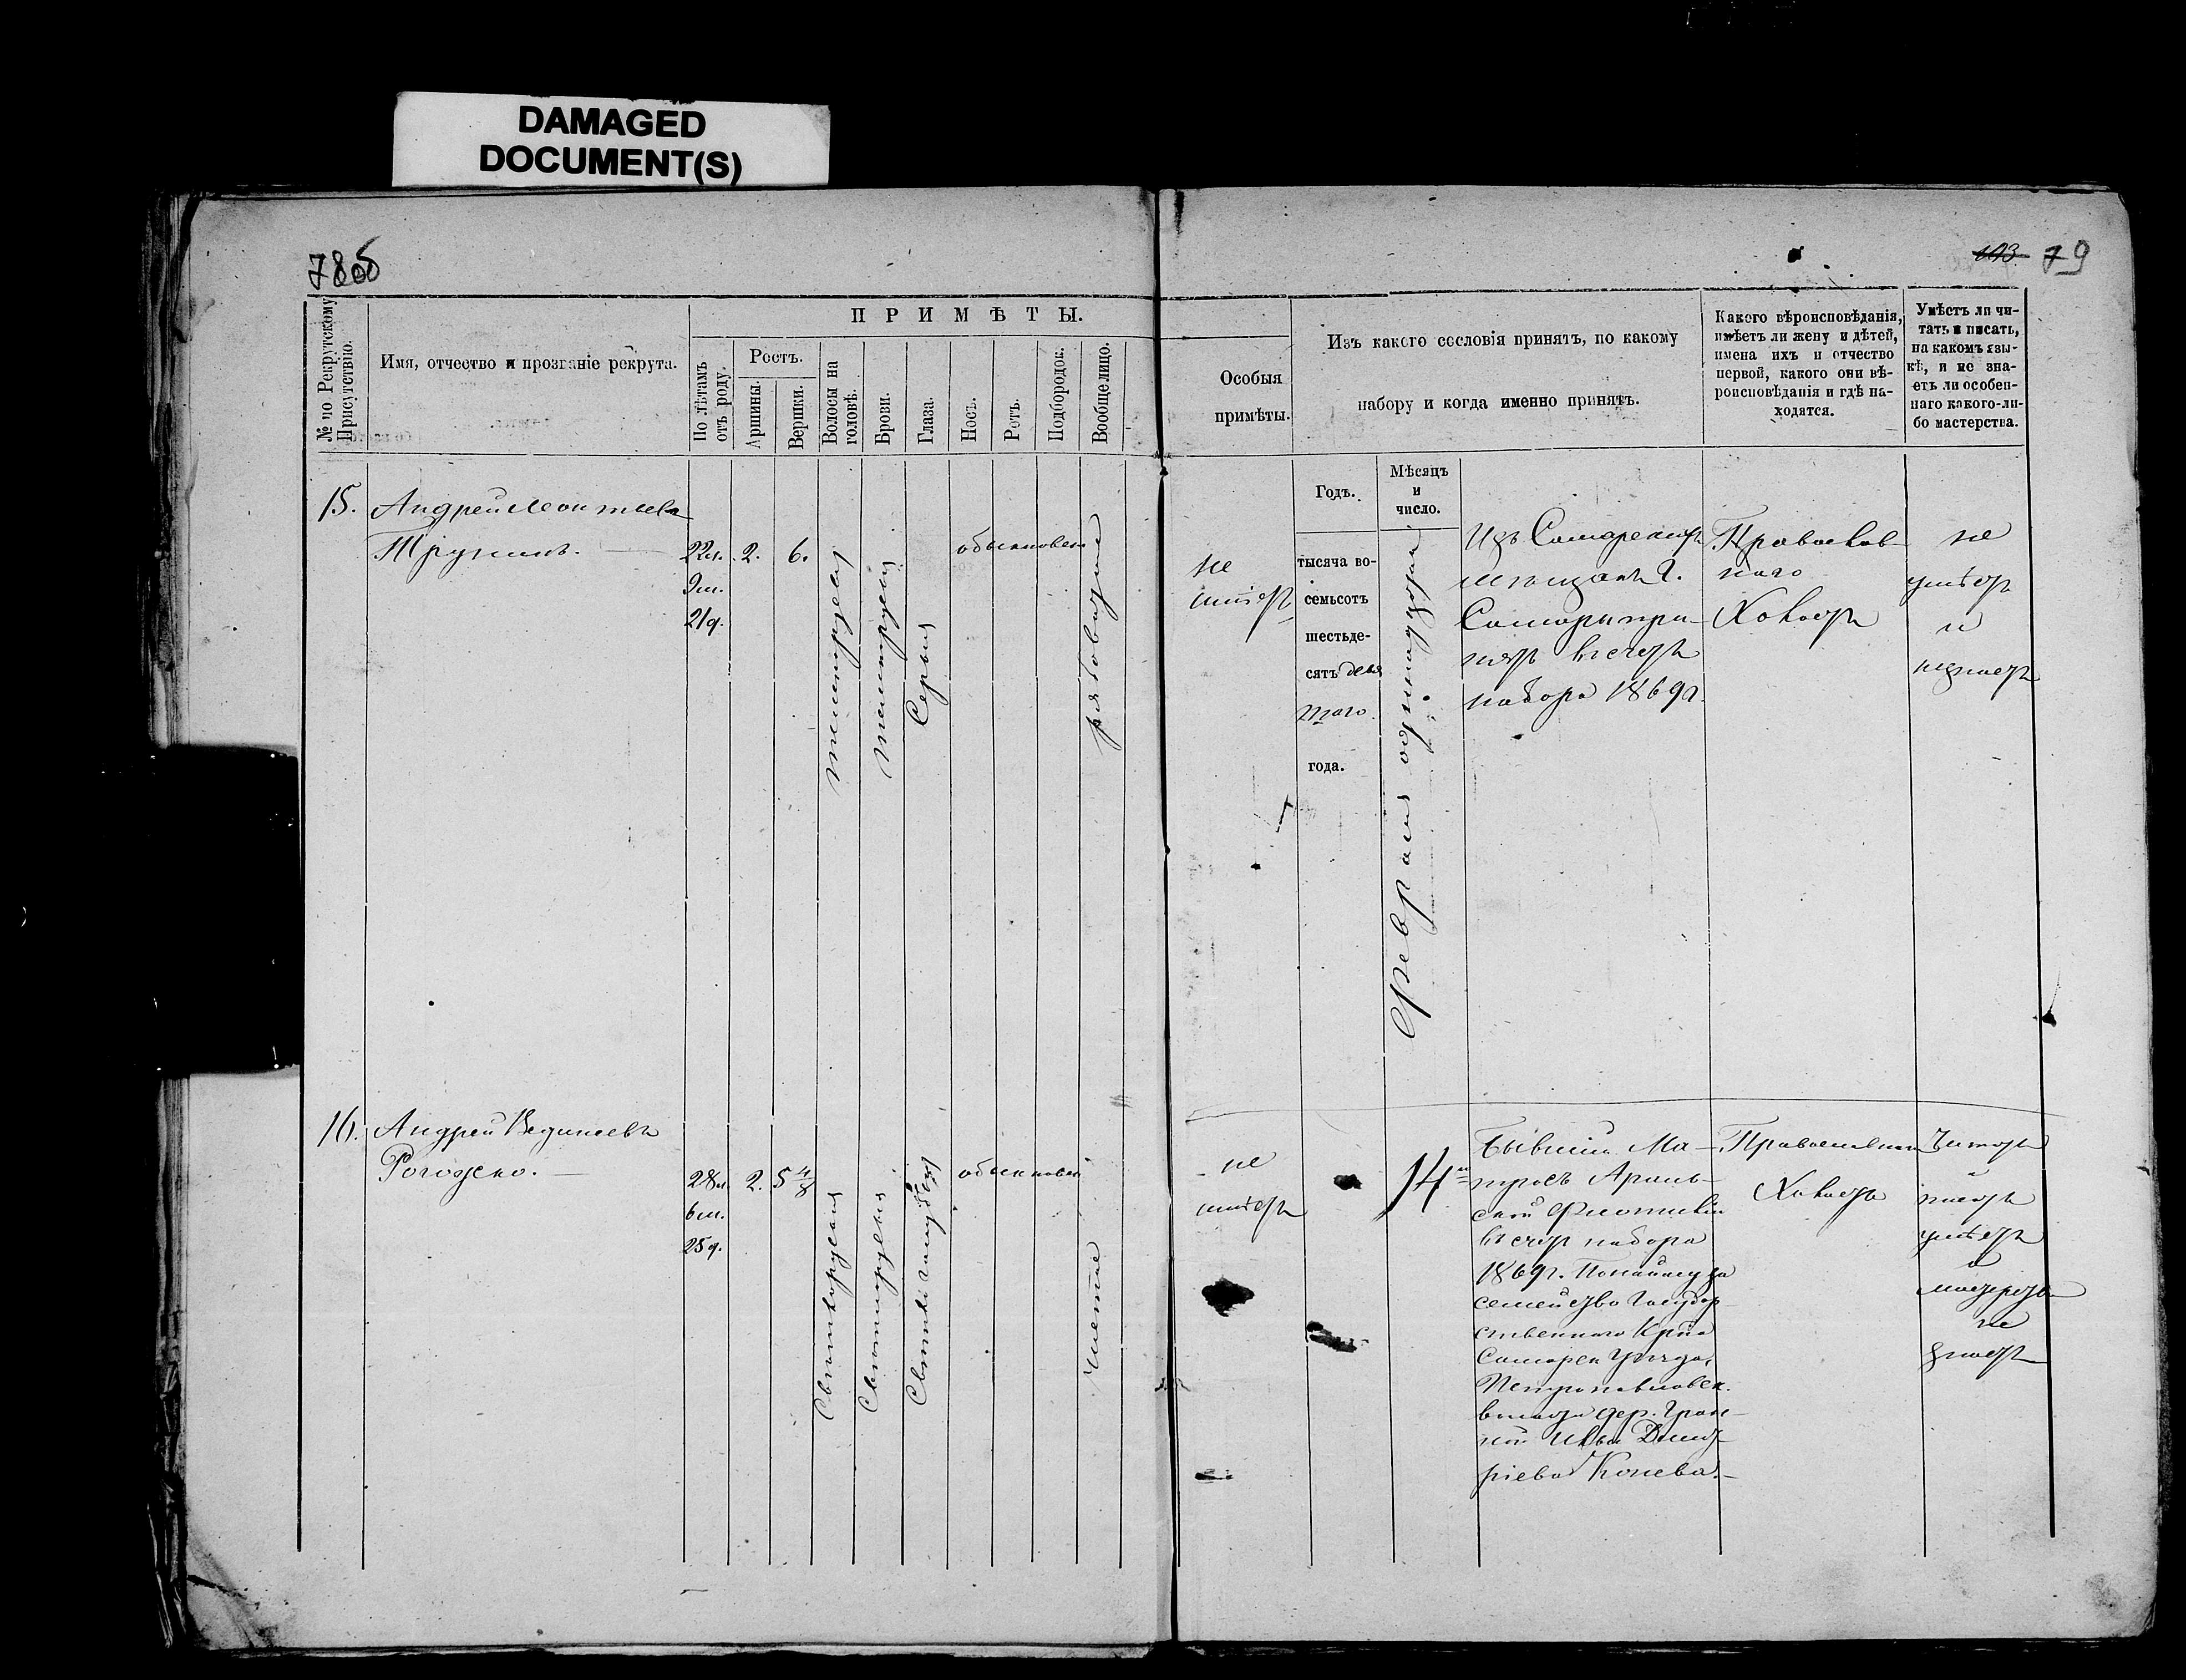 DAMAGED
DOCUMENT(S)
78об
103 79
№ по Рекрутскому
Присутствію.
Имя, отчество и прозваніе рекрута.
ПРИМѢТЫ.
По лѣтамъ
отъ роду.
Ростъ.
Аршины.
Вершки.
Волосы на
головѣ.
Брови.
Глаза.
Носъ.
Ротъ.
Подбородок.
Вообще лицо.
Особыя
примѣты.
Изъ какого сословія принятъ, по какому
набору и когда именно принятъ.
Какого вѣроисповѣданія,
имѣетъ ли жену и дѣтей,
имена ихъ и отчество
первой, какого они вѣ-
роисповѣданія и гдѣ на-
ходятся.
Умѣетъ ли чи-
тать и писать,
на какомъ язы-
кѣ, и не зна-
етъ ли особен-
наго какого-ли-
бо мастерства.
Годъ.
Мѣсяцъ
и
число.
15.
Андрей Леонтьевъ
22л.
9м.
21д.
2.
6.
темнорусыя
темнорусыя
Серыя
обыкновен
рябоватое
не
имѣетъ
тысяча во-
семьсотъ
шестьде-
сятъ девя
таго
года.
Февраля одинадцатаго
Изъ Самарскихъ
мѣщанъ г.
Самары при-
нятъ въ счетъ
набора 1869г.
Православ-
наго
Холостъ
не
умѣетъ
и
незнаетъ
16.
Андрей
28л.
6м.
25д.
2.
5 4/8
Свѣтлорусыя
Свѣтлорусыя
Светлоголубыя
обыкновен
чистое
не
имѣетъ
14
Бывшій Ма-
тросъ Араль-
ской Флотиліи
въ счетъ набора
1869г. По найму за
семейство Государ-
ственнаго Крна
Самарск Уѣзда,
Петропавловск.
волости дер. Грач-
ной Ильи Дмит-
ріева Конева.
Православнаго
Холостъ
Читать
и
писать
умѣетъ
а
мастерства
не
знаетъ